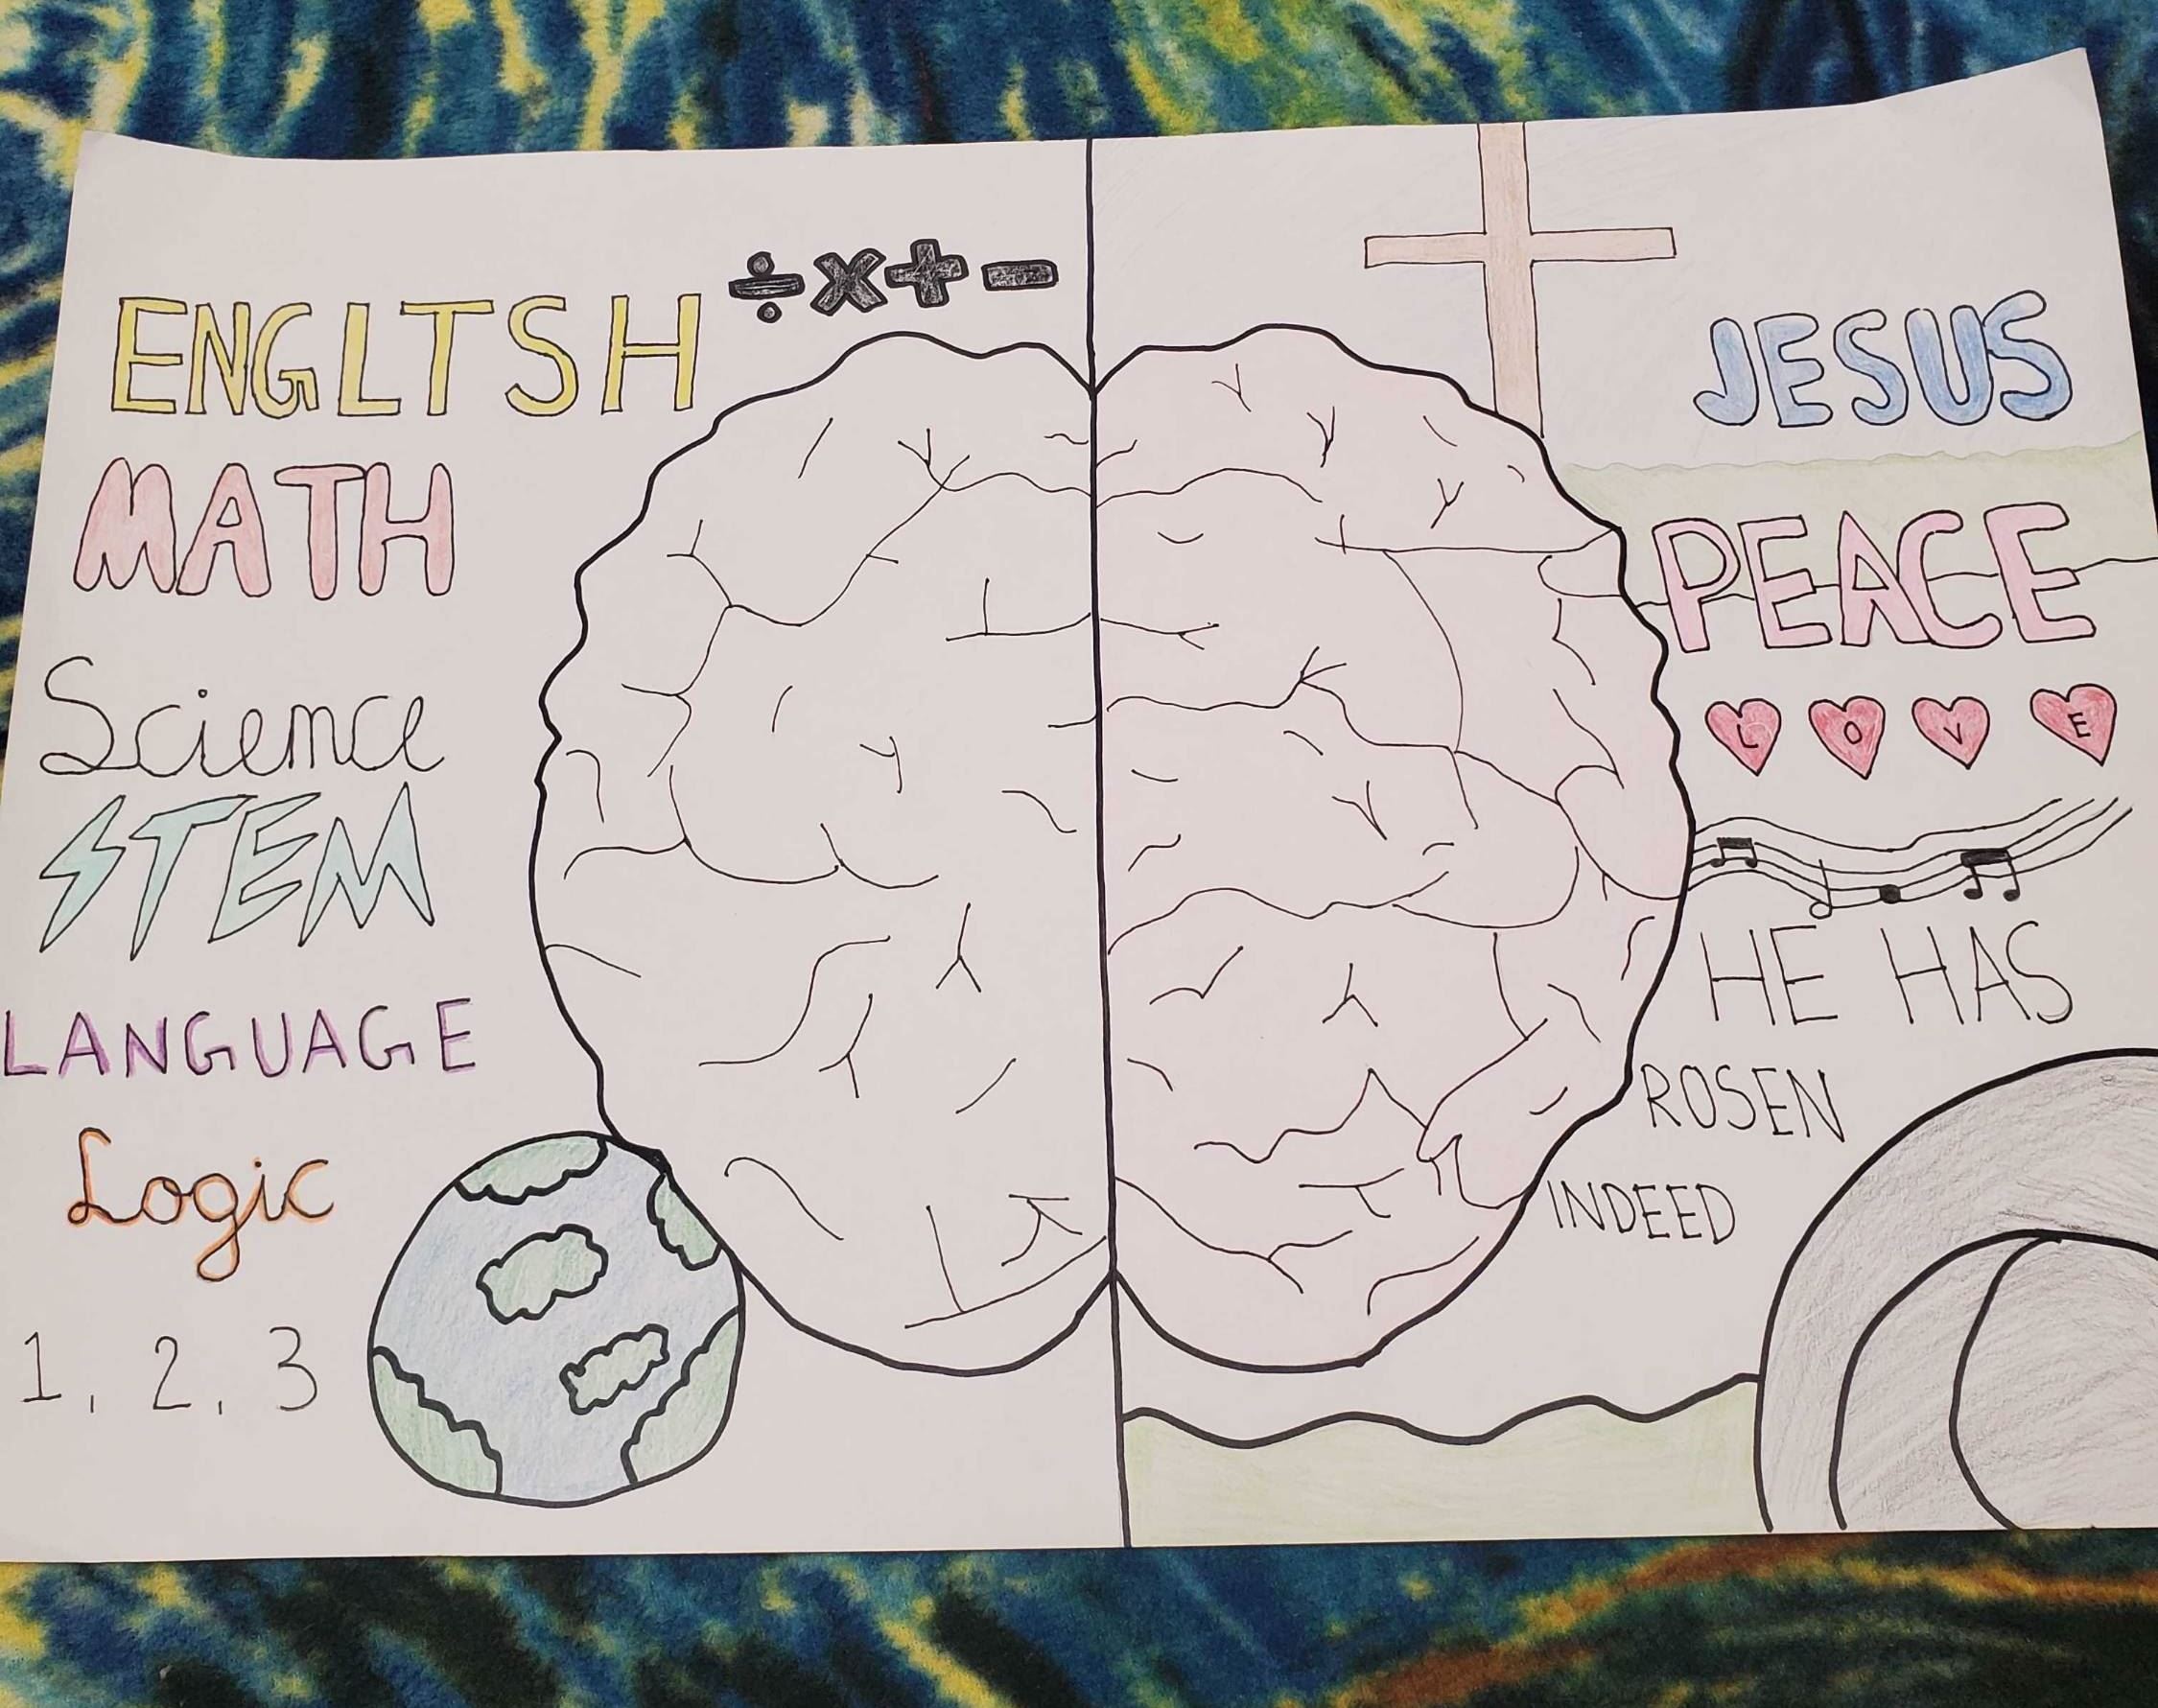 ÷ x + -
ENGLTSH
MATH
Science
STEM
LANGUAGE
Logic
1, 2, 3
JESUS
PEACE
L O V E
HE HAS
ROSEN
INDEED